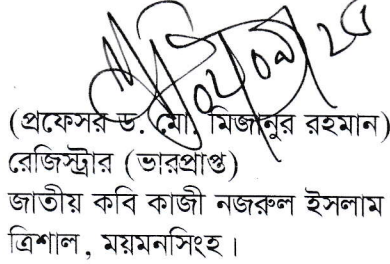 ০২/০৯/২৫
(প্রফেসর ড. মো. মিজানুর রহমান)
রেজিস্ট্রার (ভারপ্রাপ্ত)
জাতীয় কবি কাজী নজরুল ইসলাম
ত্রিশাল, ময়মনসিংহ।